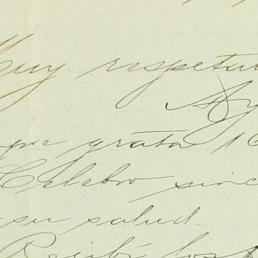 Muy respetu
Ay
que grata 16
Celebro sinc
su salud.
Recibí los